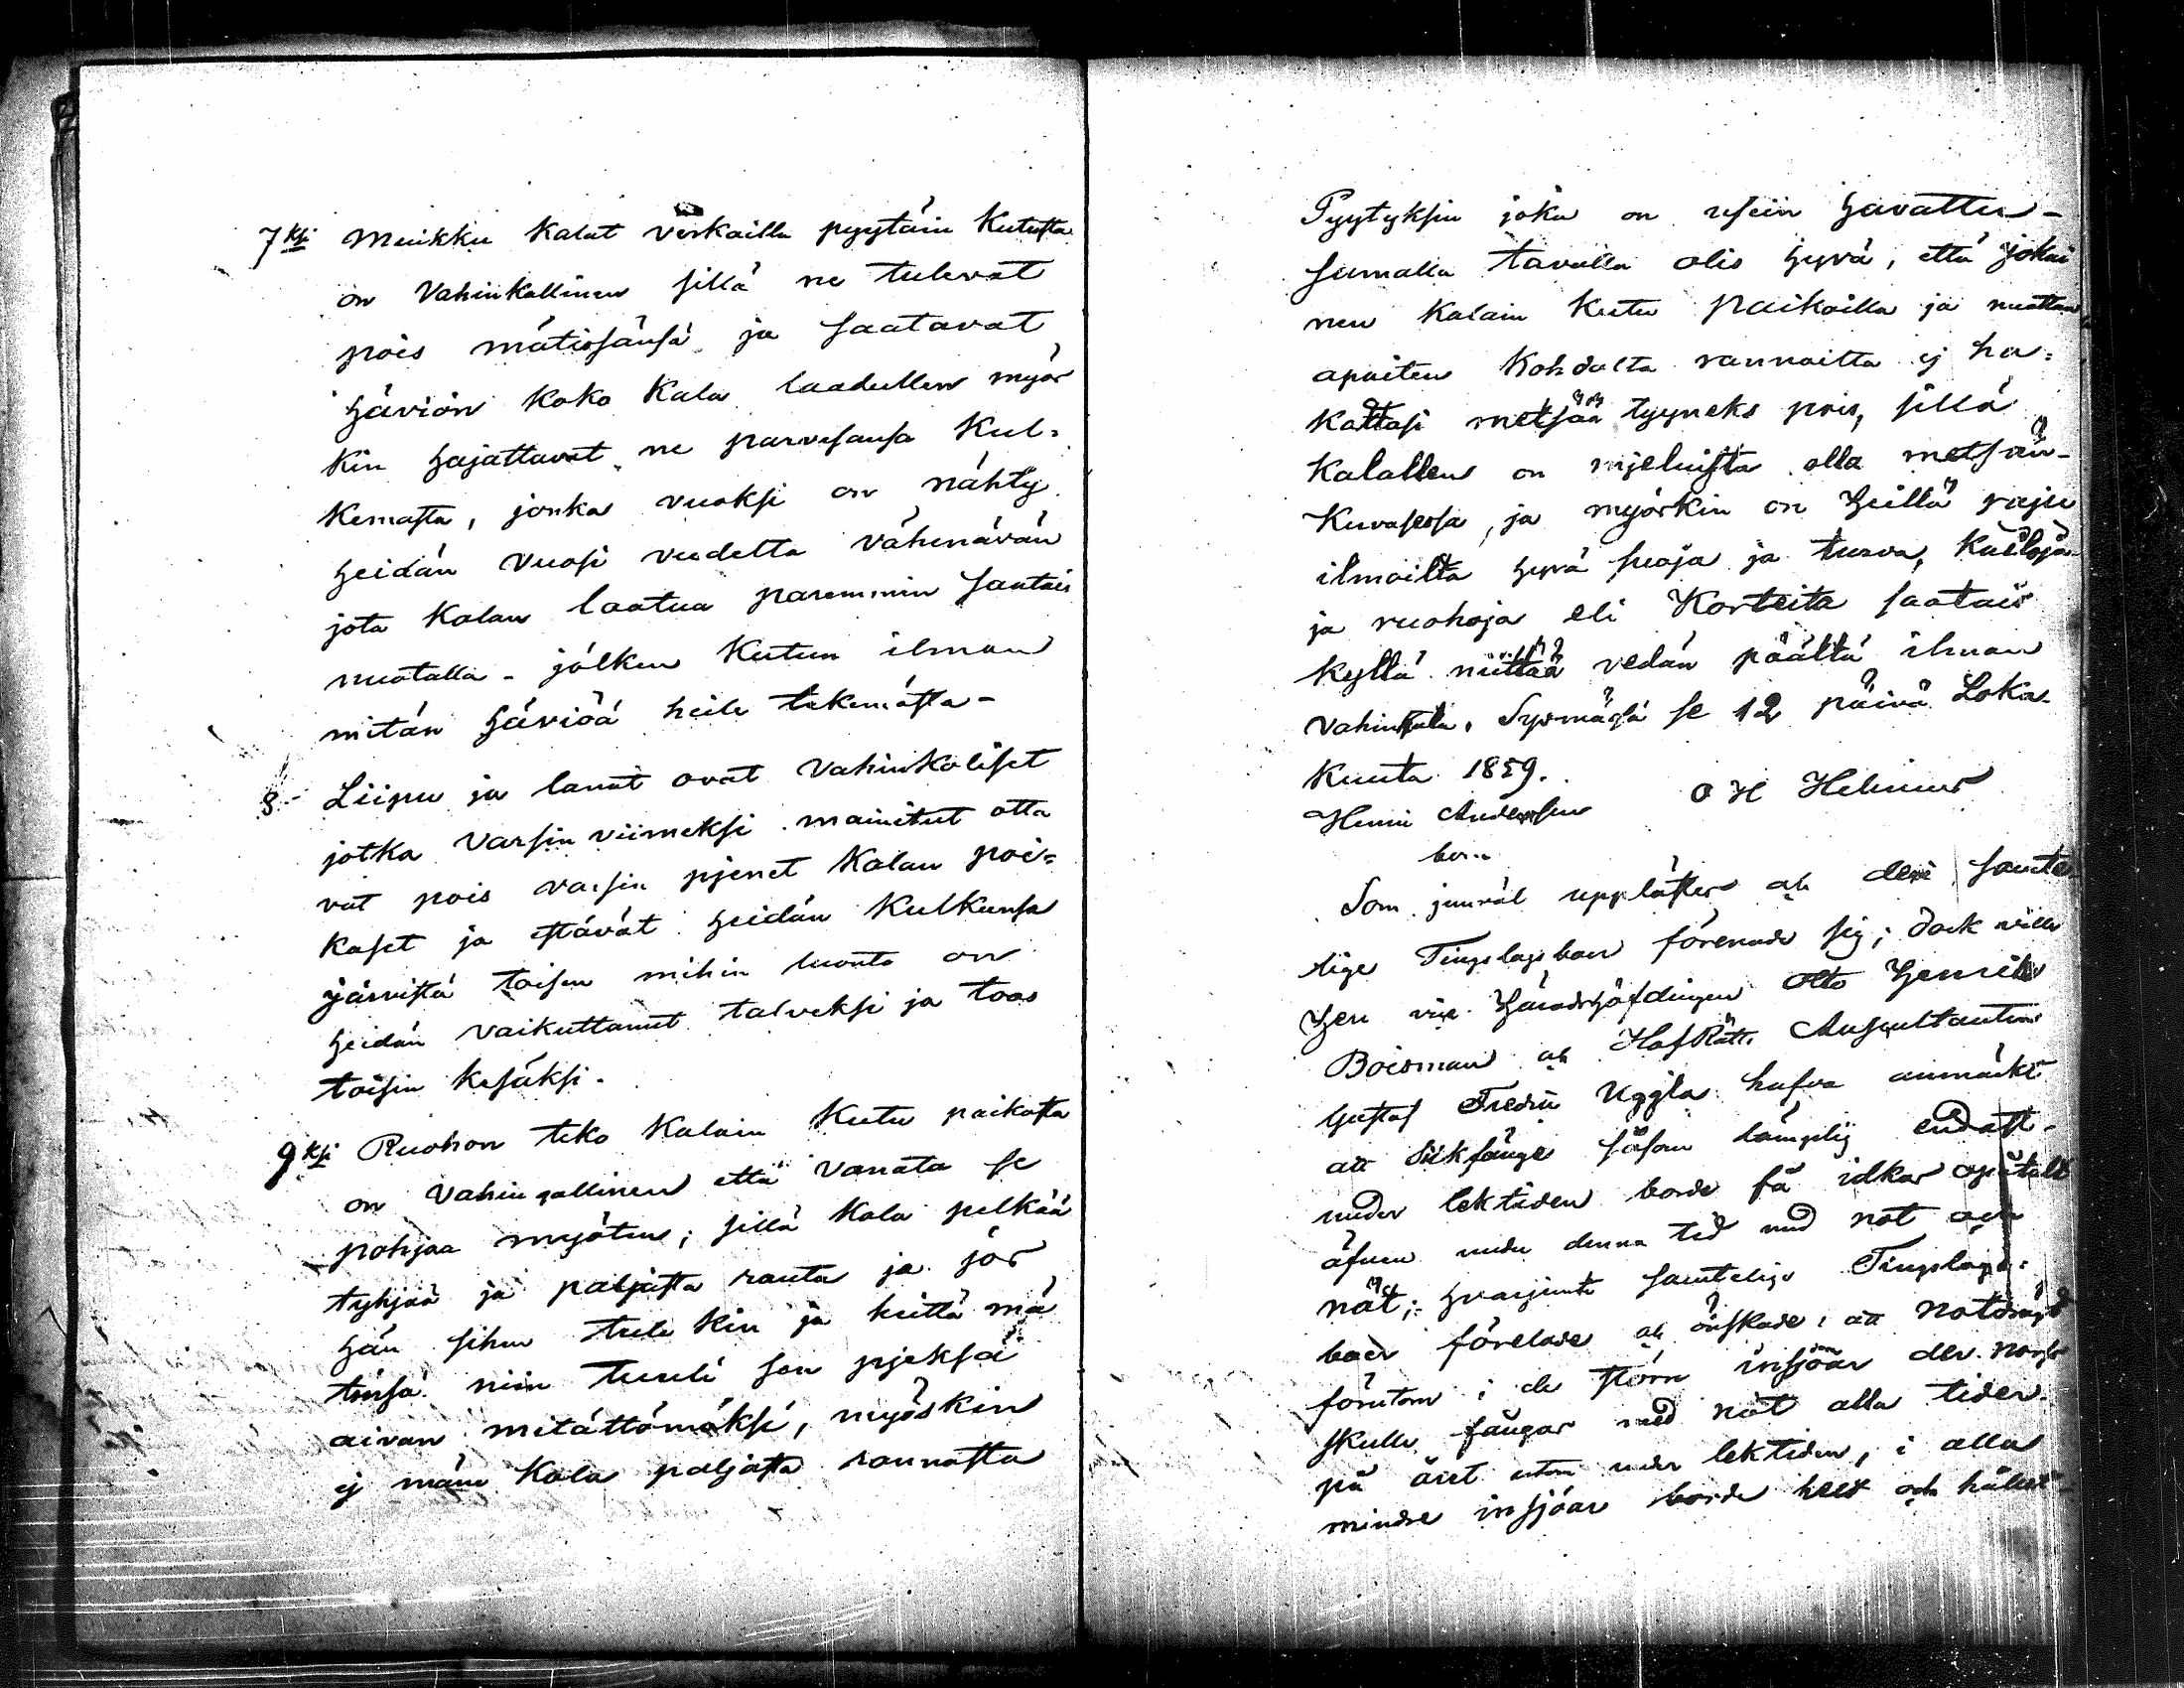 7ksi Muikku Kalat verkoilla pyytäin Kutusta
on Vahinkallinen sillä ne tulevat
pois mätissänsä ja saatavat
häviön koko Kala laadullen myös
kin hajattavat ne parvesansa Kul=
kemasta, jonka vuoksi on nähty
heidän vuosi vudelta vähenävän
jota Kalan laatua paremmin saatais
nuotalla - jälken Kutun ilman
mitän häviöä heile tekemästa -
8 Liipu ja lanat ovat vahinkoliset
jotka varsin viimeksi mainitut otta
vat pois varsin pjenet Kalan poi=
kaset ja estävät heidän Kulkunsa
järvistä toisen mihin luonto on
heidän vaikuttanut talveksi ja taas
toisin kesäksi.
9ksi Ruohon teko Kalain Kutu paikosta
on Vahingallinen että vanata se
pohjaa myöten; sillä Kala pelkää
tyhjää ja paljasta ranta ja jos
hän sihen tule kin ja heittä mä
tinsä niin tuuli son pjeksä
aivan mitättömäksi, myöskin
ej mäne Kala paljasta rannasta
Pyytyksiin joka on usein havattu-
samalla tavalla olis hyvä, että jokai
nen Kalain Kutu paikoilla ja nuottan
apaiten Kohdalta rannoilta ej ha=
kattasi metsää tyyneks pois, sillä
Kalallen on mjeluista olla metsän-
Kuvasessa, ja myöskin on heillä raju
ilmoilta hyvä suoja ja turva, Kaisloja
ja ruohoja eli Korteita saatais
kyllä niittää vedän päältä ilman
vahinkota. Sysmässä se 12 päivä Loka-
Kuuta 1859.
Henric Andersson O H Helenius
Som jemväl upplästes och deri samte
lige Tingslagsboer förenade sig; dock ville
Herr vice Häradshöfdingen Otto Henrik
Boisman och HofRätts Auscultanten
Gustaf Fredric Uggla hafva anmärkt
att Sikfänge såsom lämplig endast
under lektiden borde få idkas
äfven under denna tid med not och
nät; hvarjemte samtelige Tingslags-
boer förelade och önskade, att notdrägt
förutom i de större insjöar der nors
skulle fångas med not alla tider
på året utom under lektiden, i alla
mindre insjöar borde helt och hållet